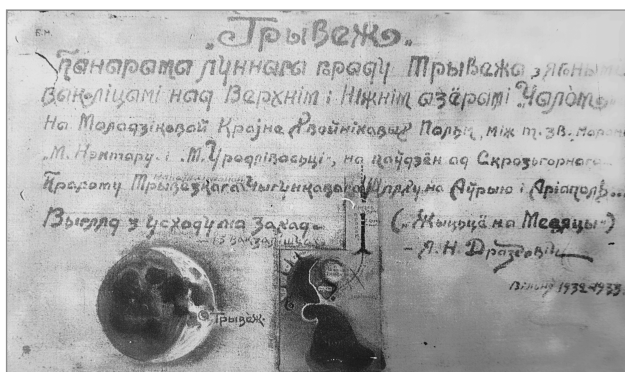 „Трывеж".
Панарама луннага граду Трывежа з ягоным
ваколіцамі над Верхнім і Ніжнім азёрамі „Чалом"
На Маладзіковай Краіне Хвойнікавых Польм, між т. зв.
„М. Нэктару" і „М. Уродлівасьці", на паўдзён ад Скрозьгорнага
Прароту Трывежскага Чыгункавага Шляху на Аўрыю і Арыаполь
Выгляд з усходу на Захад. („Жыцьцё на Месяцы")
– Я. Н. Драздовіч
Вільня 1932–1933
Трывеж.